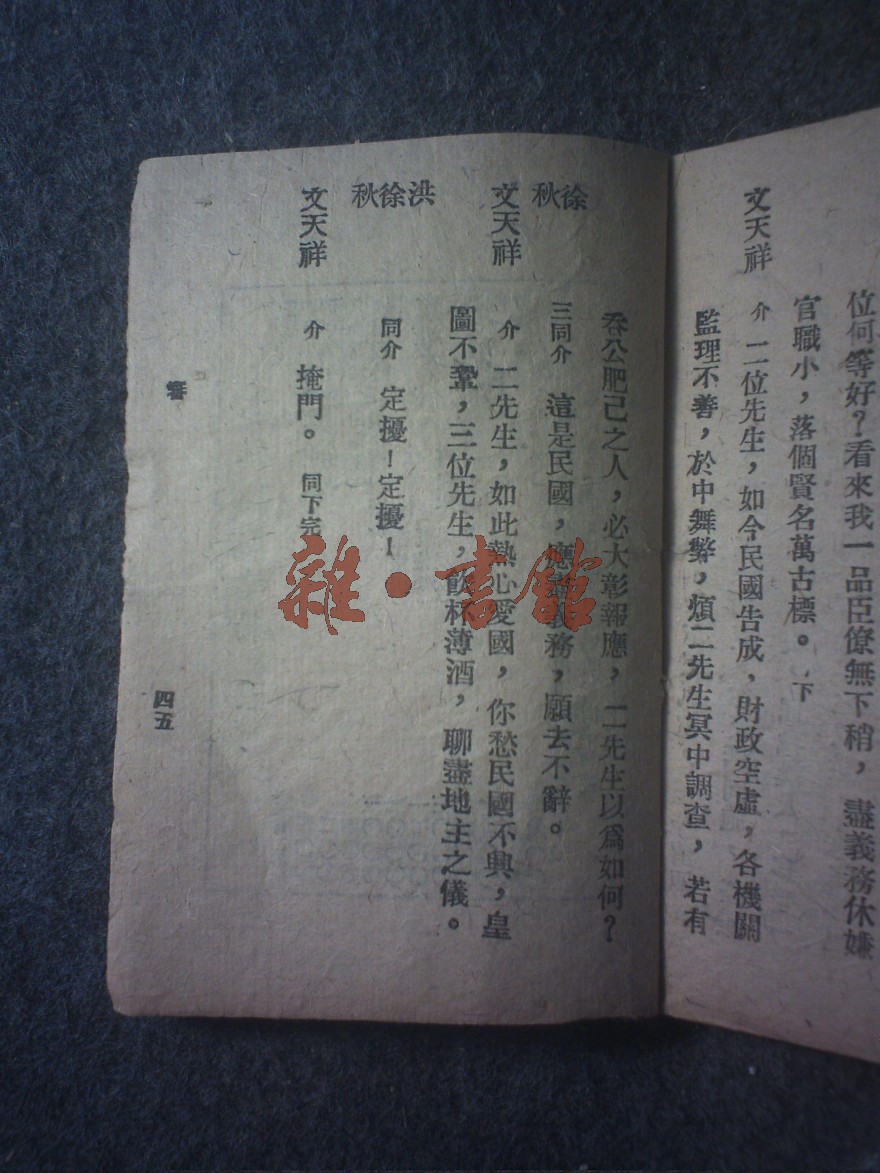 位何等好？看來我一品臣僚無下稍，盡義務休嫌
官職小，落個賢名萬古標。下
文天祥 介 二位先生，如今民國告成，財政空虛，各機關
監理不善，於中舞弊，煩二先生冥中調查，若有
吞公肥己之人，必大彰報應，二先生以爲如何？
秋徐 三同介 這是民國，應義務，願去不辭。
文天祥 介 二先生，如此熱心愛國，你愁民國不興，皇
圖不鞏，三位先生，飲杯薄酒，聊盡地主之儀。
秋徐洪 同介 定擾！定擾！
文天祥 介 掩門。同下完
四五
雜·書館